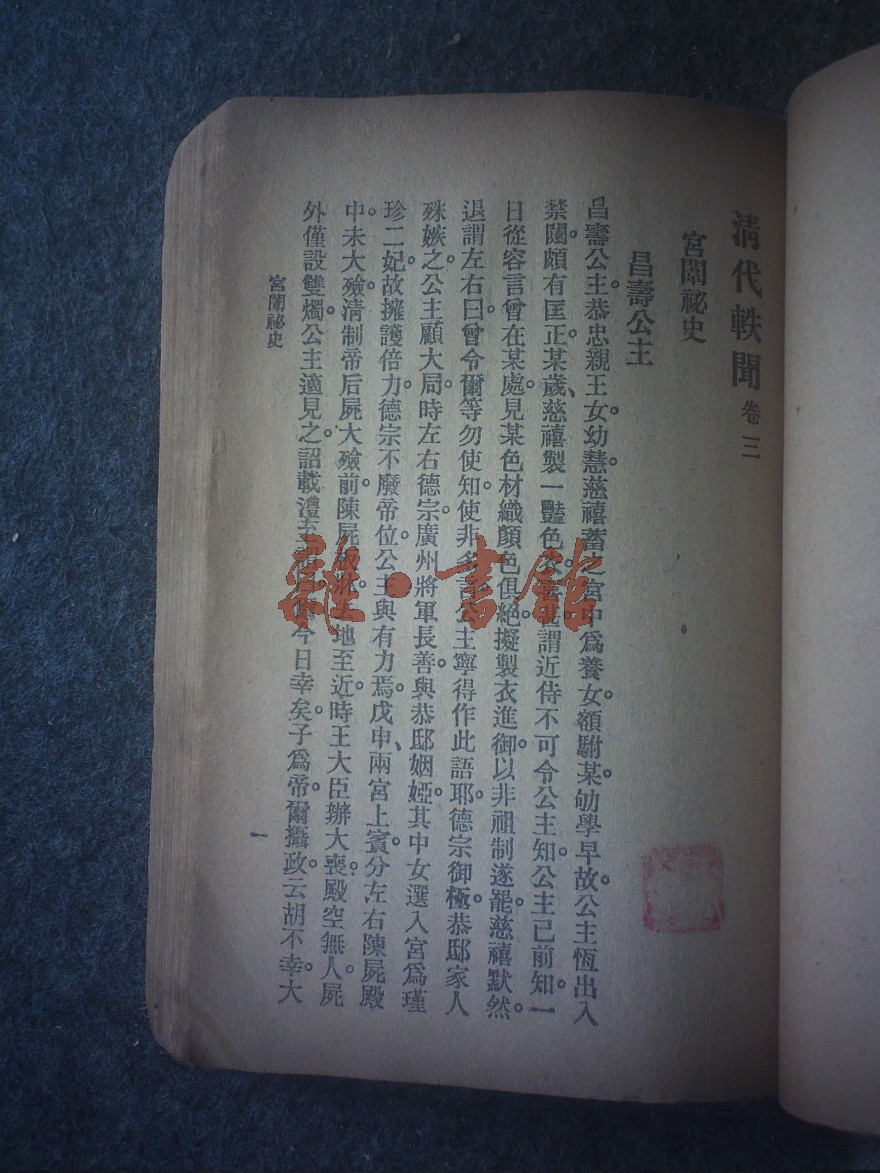 清代軼聞 卷三
宮闈祕史
昌壽公主
昌壽公主。恭忠親王女。幼慧。慈禧蓄之宮中。爲養女。額駙某劬學早故。公主恆出入
禁闥。頗有匡正。某歲、慈禧製一豔色謂近侍不可令公主知。公主已前知。一
日從容言曾在某處見某色材織。顏色俱絕。擬製衣進御。以非祖制遂罷。慈禧默然。
退謂左右曰。曾令爾等勿使知。使非多言。公主寧得作此語耶。德宗御極。恭邸家人
殊嫉之。公主顧大局。時左右德宗。廣州將軍長善。與恭邸姻婭。其中女選入宮爲瑾
珍二妃。故擁護倍力。德宗不廢帝位。公主與有力焉。戊申、兩宮上賓。分左右陳屍殿
中。未大殮。清制帝后屍大殮前。陳屍地至近。時王大臣辦大喪。殿空無人。屍
外僅設雙燭。公主適見之。詔載灃至今日幸矣。子爲帝。爾攝政。云胡不幸。大
宮闈祕史
一
雜·書館